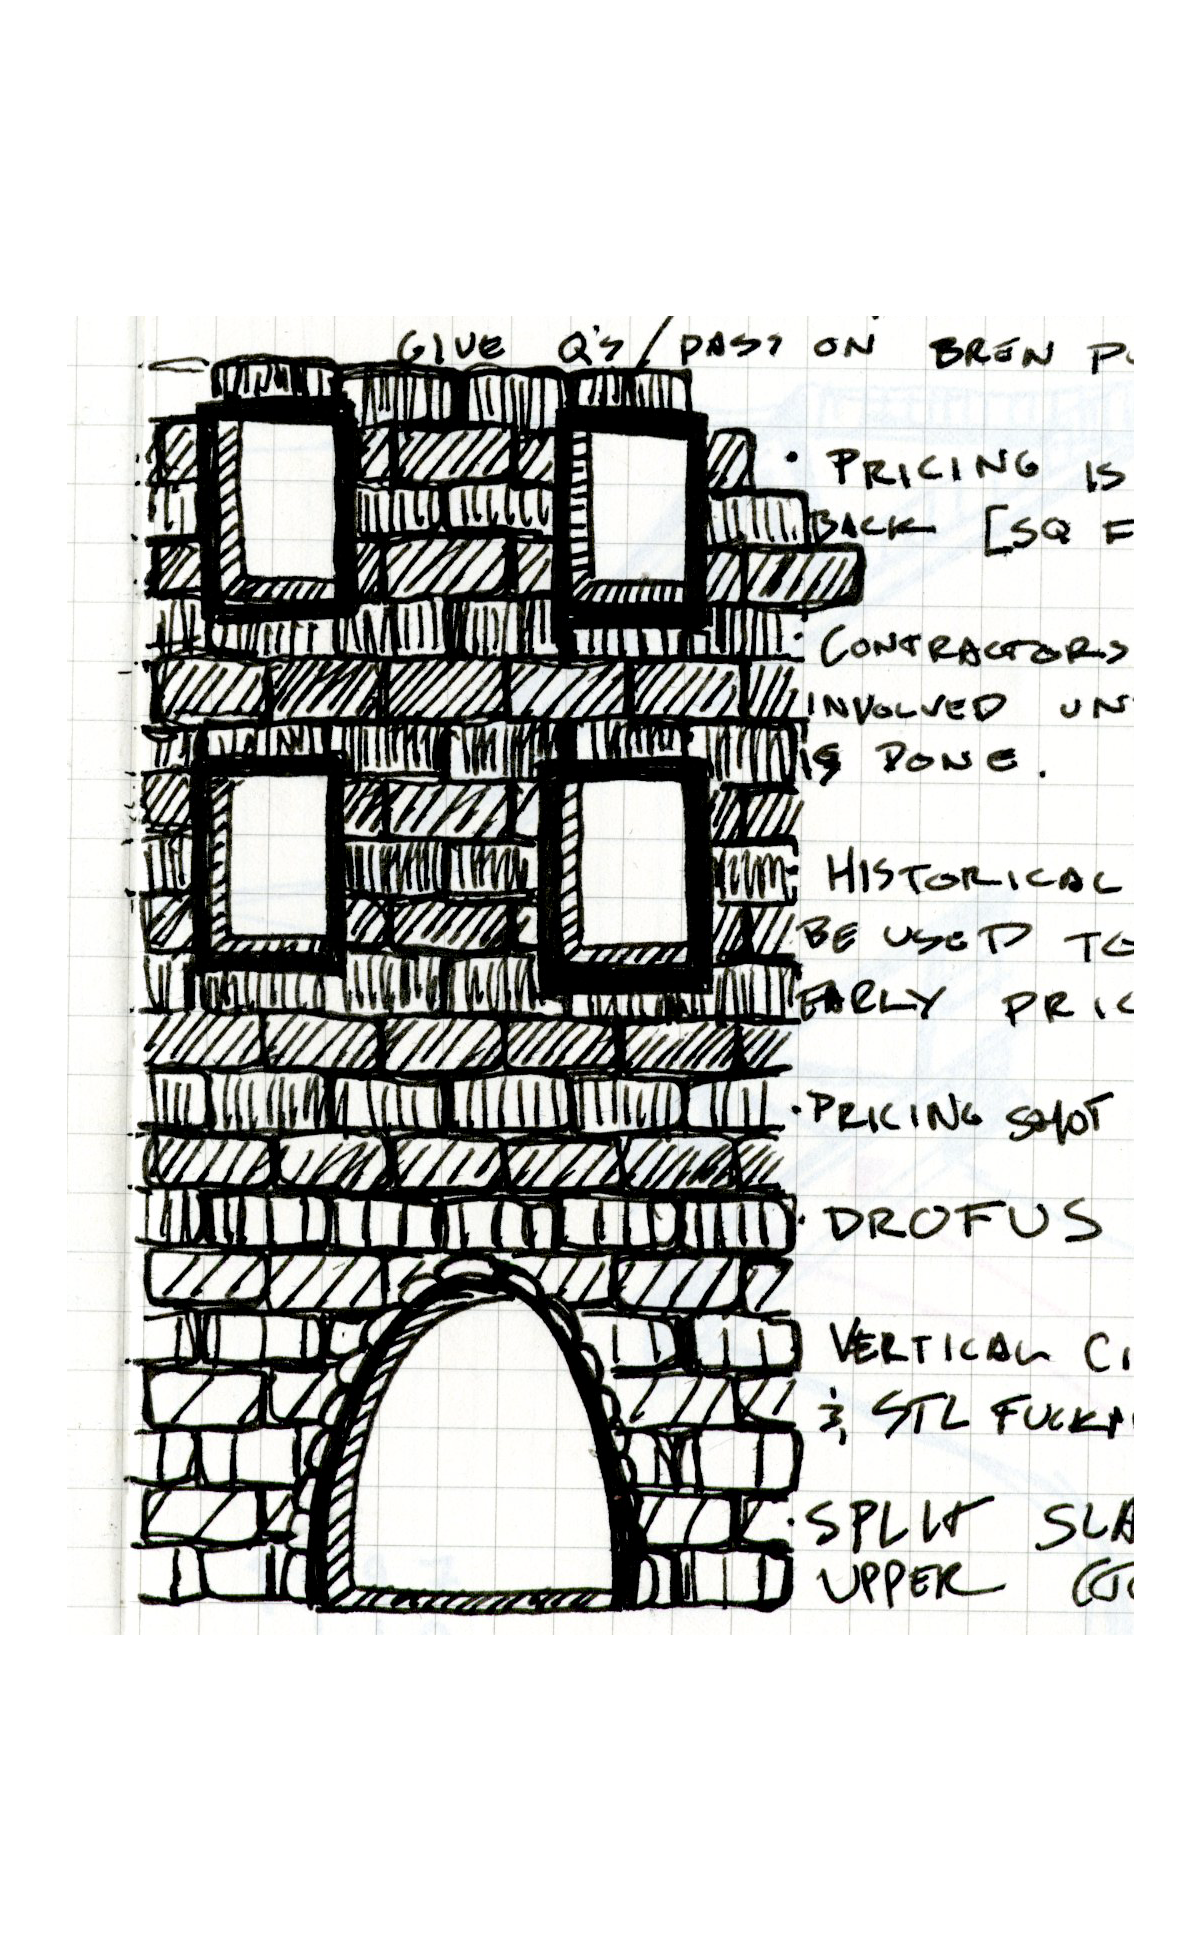 GIVE Q'S / PASS ON BREN P
• PRICING IS
BACK [SQ F
• CONTRACTORS
INVOLVED UN
IS DONE.
• HISTORICAL
BE USED TO
EARLY PRIC
• PRICING
• DROFUS
VERTICAL CI
& STL FUCK
• SPLIT SLA
UPPER